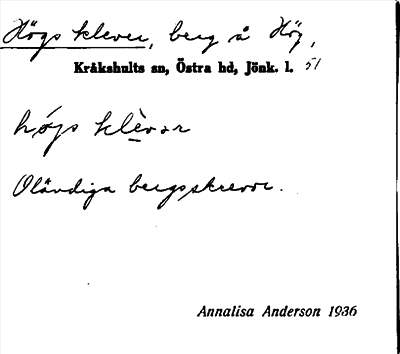 Högs klever, berg å Hög,
Kråkshults sn, Östra hd, Jönk. l. 51
hö́gs klèvər
Oländiga bergsskrevor.
Annalisa Anderson 1936